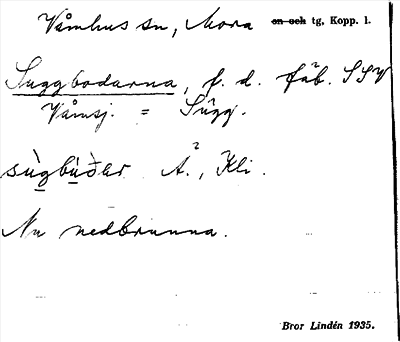 Våmhus sn, Mora en och tg, Kopp. l.
Suggbodarna, f. d. fäb. SSV
Våmsj. = Sugg.
sùgbùðar A., Kli.
Nu nedbrunna.
Bror Lindén 1935.